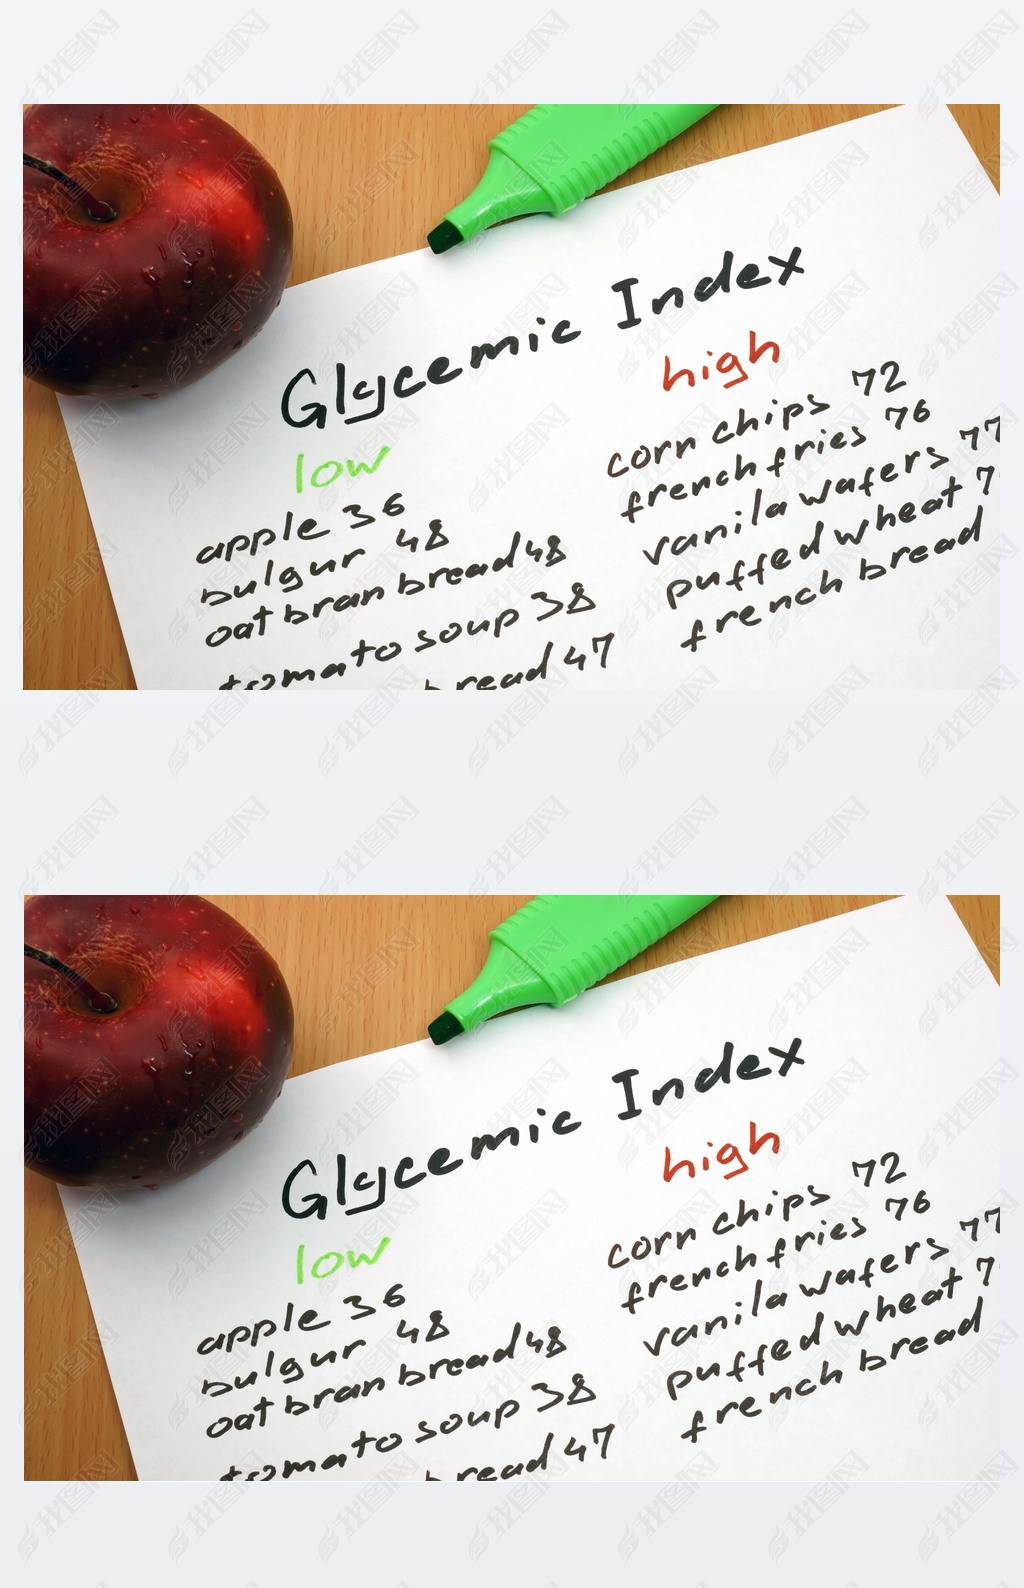 Glycemic Index
low
apple 36
bulgur 48
oat bran bread 48
tomato soup 38
bread 47
high
corn chips 72
french fries 76
vanila wafers 77
puffed wheat 7
french bread
Glycemic Index
low
apple 36
bulgur 48
oat bran bread 48
tomato soup 38
bread 47
high
corn chips 72
french fries 76
vanila wafers 77
puffed wheat 7
french bread
我图网